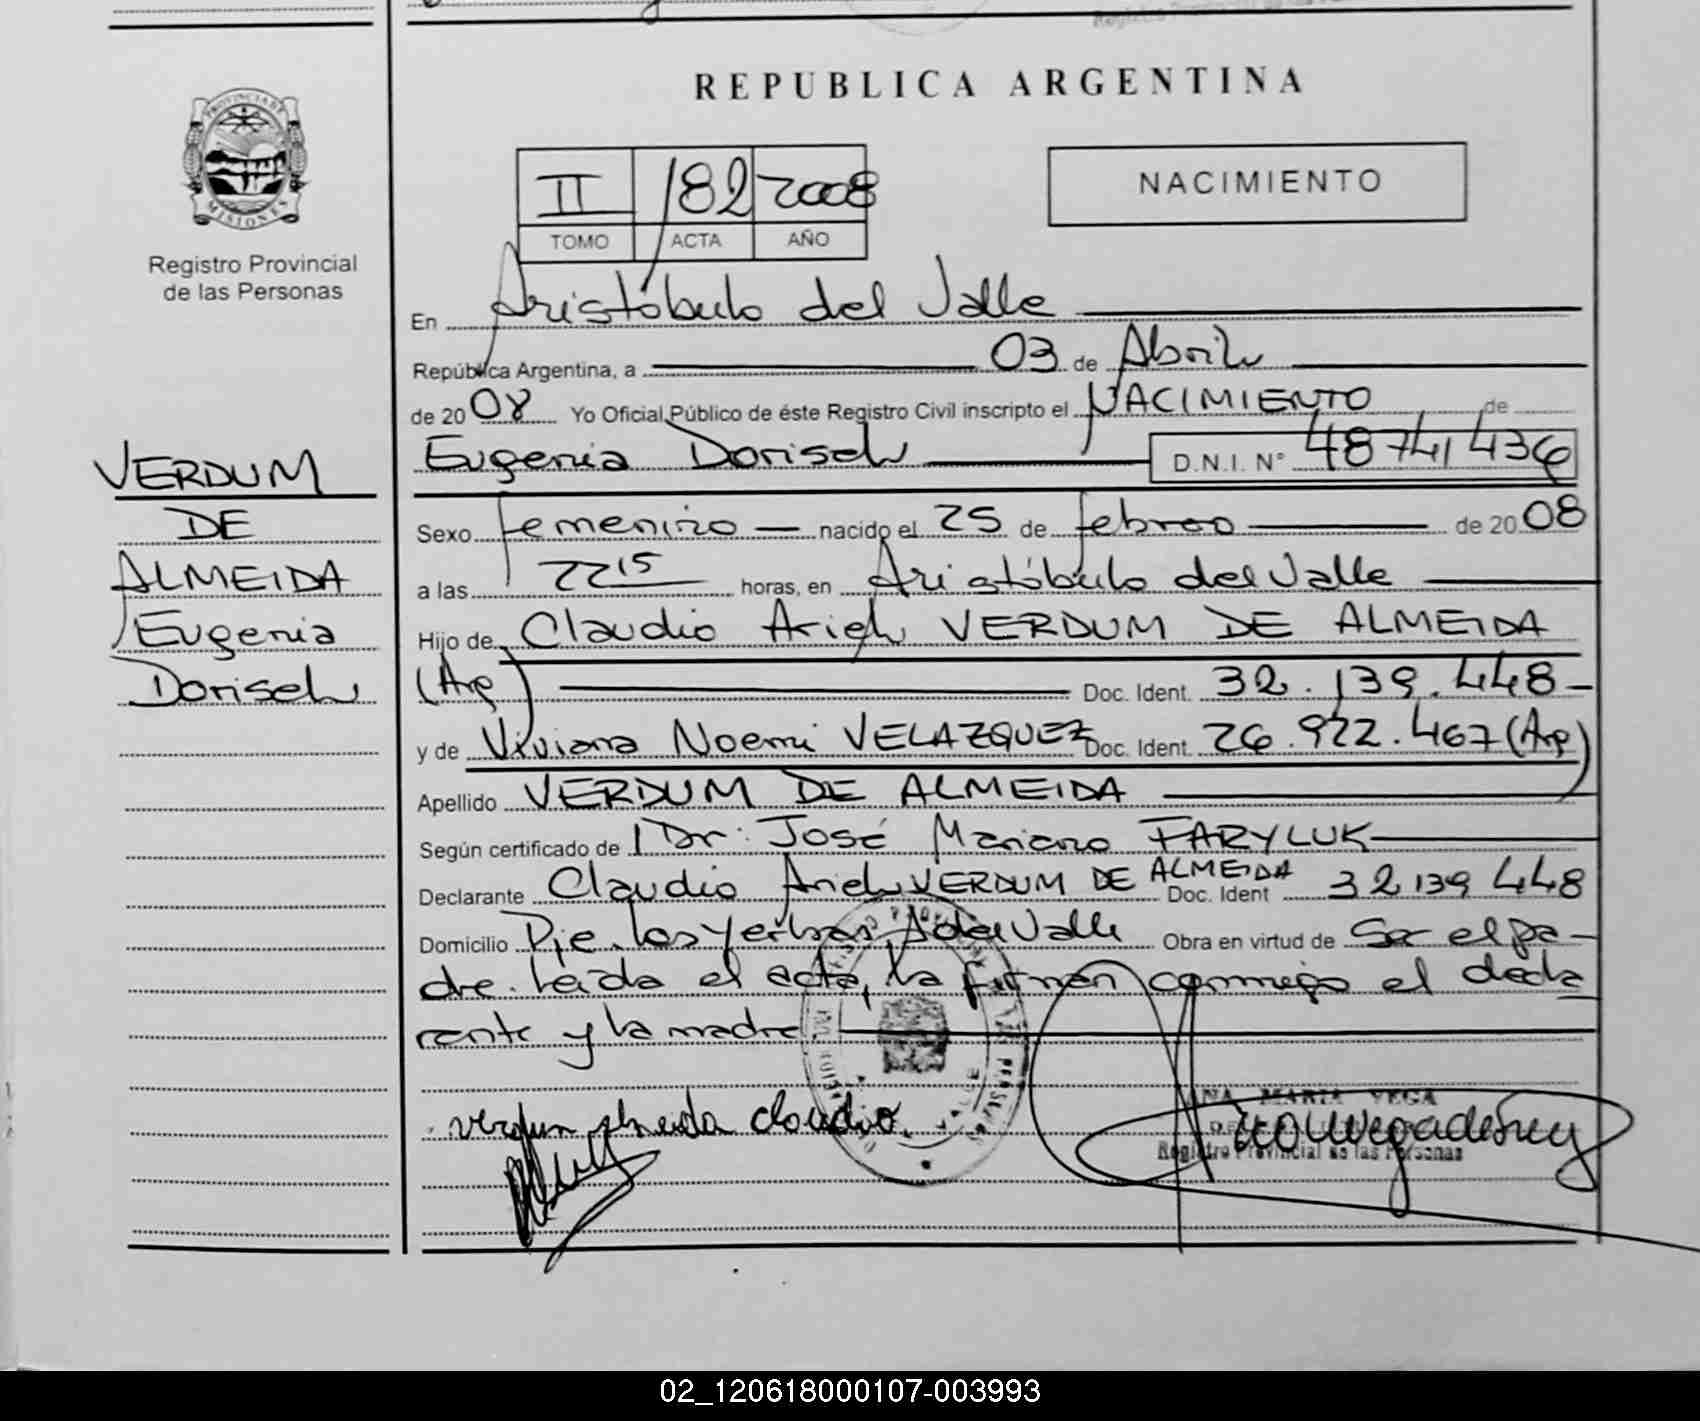 REPUBLICA ARGENTINA
PROVINCIA DE
MISIONES
Registro Provincial
de las Personas
II 182 2008
TOMO ACTA AÑO
NACIMIENTO
En Aristóbulo del Valle
República Argentina, a 03 de Abril
de 2008 Yo Oficial Público de éste Registro Civil inscripto el NACIMIENTO de
Eugenia Dorisel D.N.I. N° 48741436
VERDUM
DE
ALMEIDA
Eugenia
Dorisel
Sexo femenino nacido el 25 de febrero de 2008
a las 22 15 horas, en Aristóbulo del Valle
Hijo de Claudio Ariel VERDUM DE ALMEIDA
(Arg) Doc. Ident. 32.139.448
y de Viviana Noemi VELAZQUEZ Doc. Ident. 26.922.467 (Arg)
Apellido VERDUM DE ALMEIDA
Según certificado de Dr. José Mariano FARYLUK
Declarante Claudio Ariel VERDUM DE ALMEIDA Doc. Ident 32139448
Domicilio Pje. Los Yerbas, A del Valle Obra en virtud de Ser el pa-
dre. Leída el acta, la firman conmigo el decla
rante y la madre
verdum almeida claudio
ANA MARIA VEGA
Registro Provincial de las Personas
02_120618000107-003993